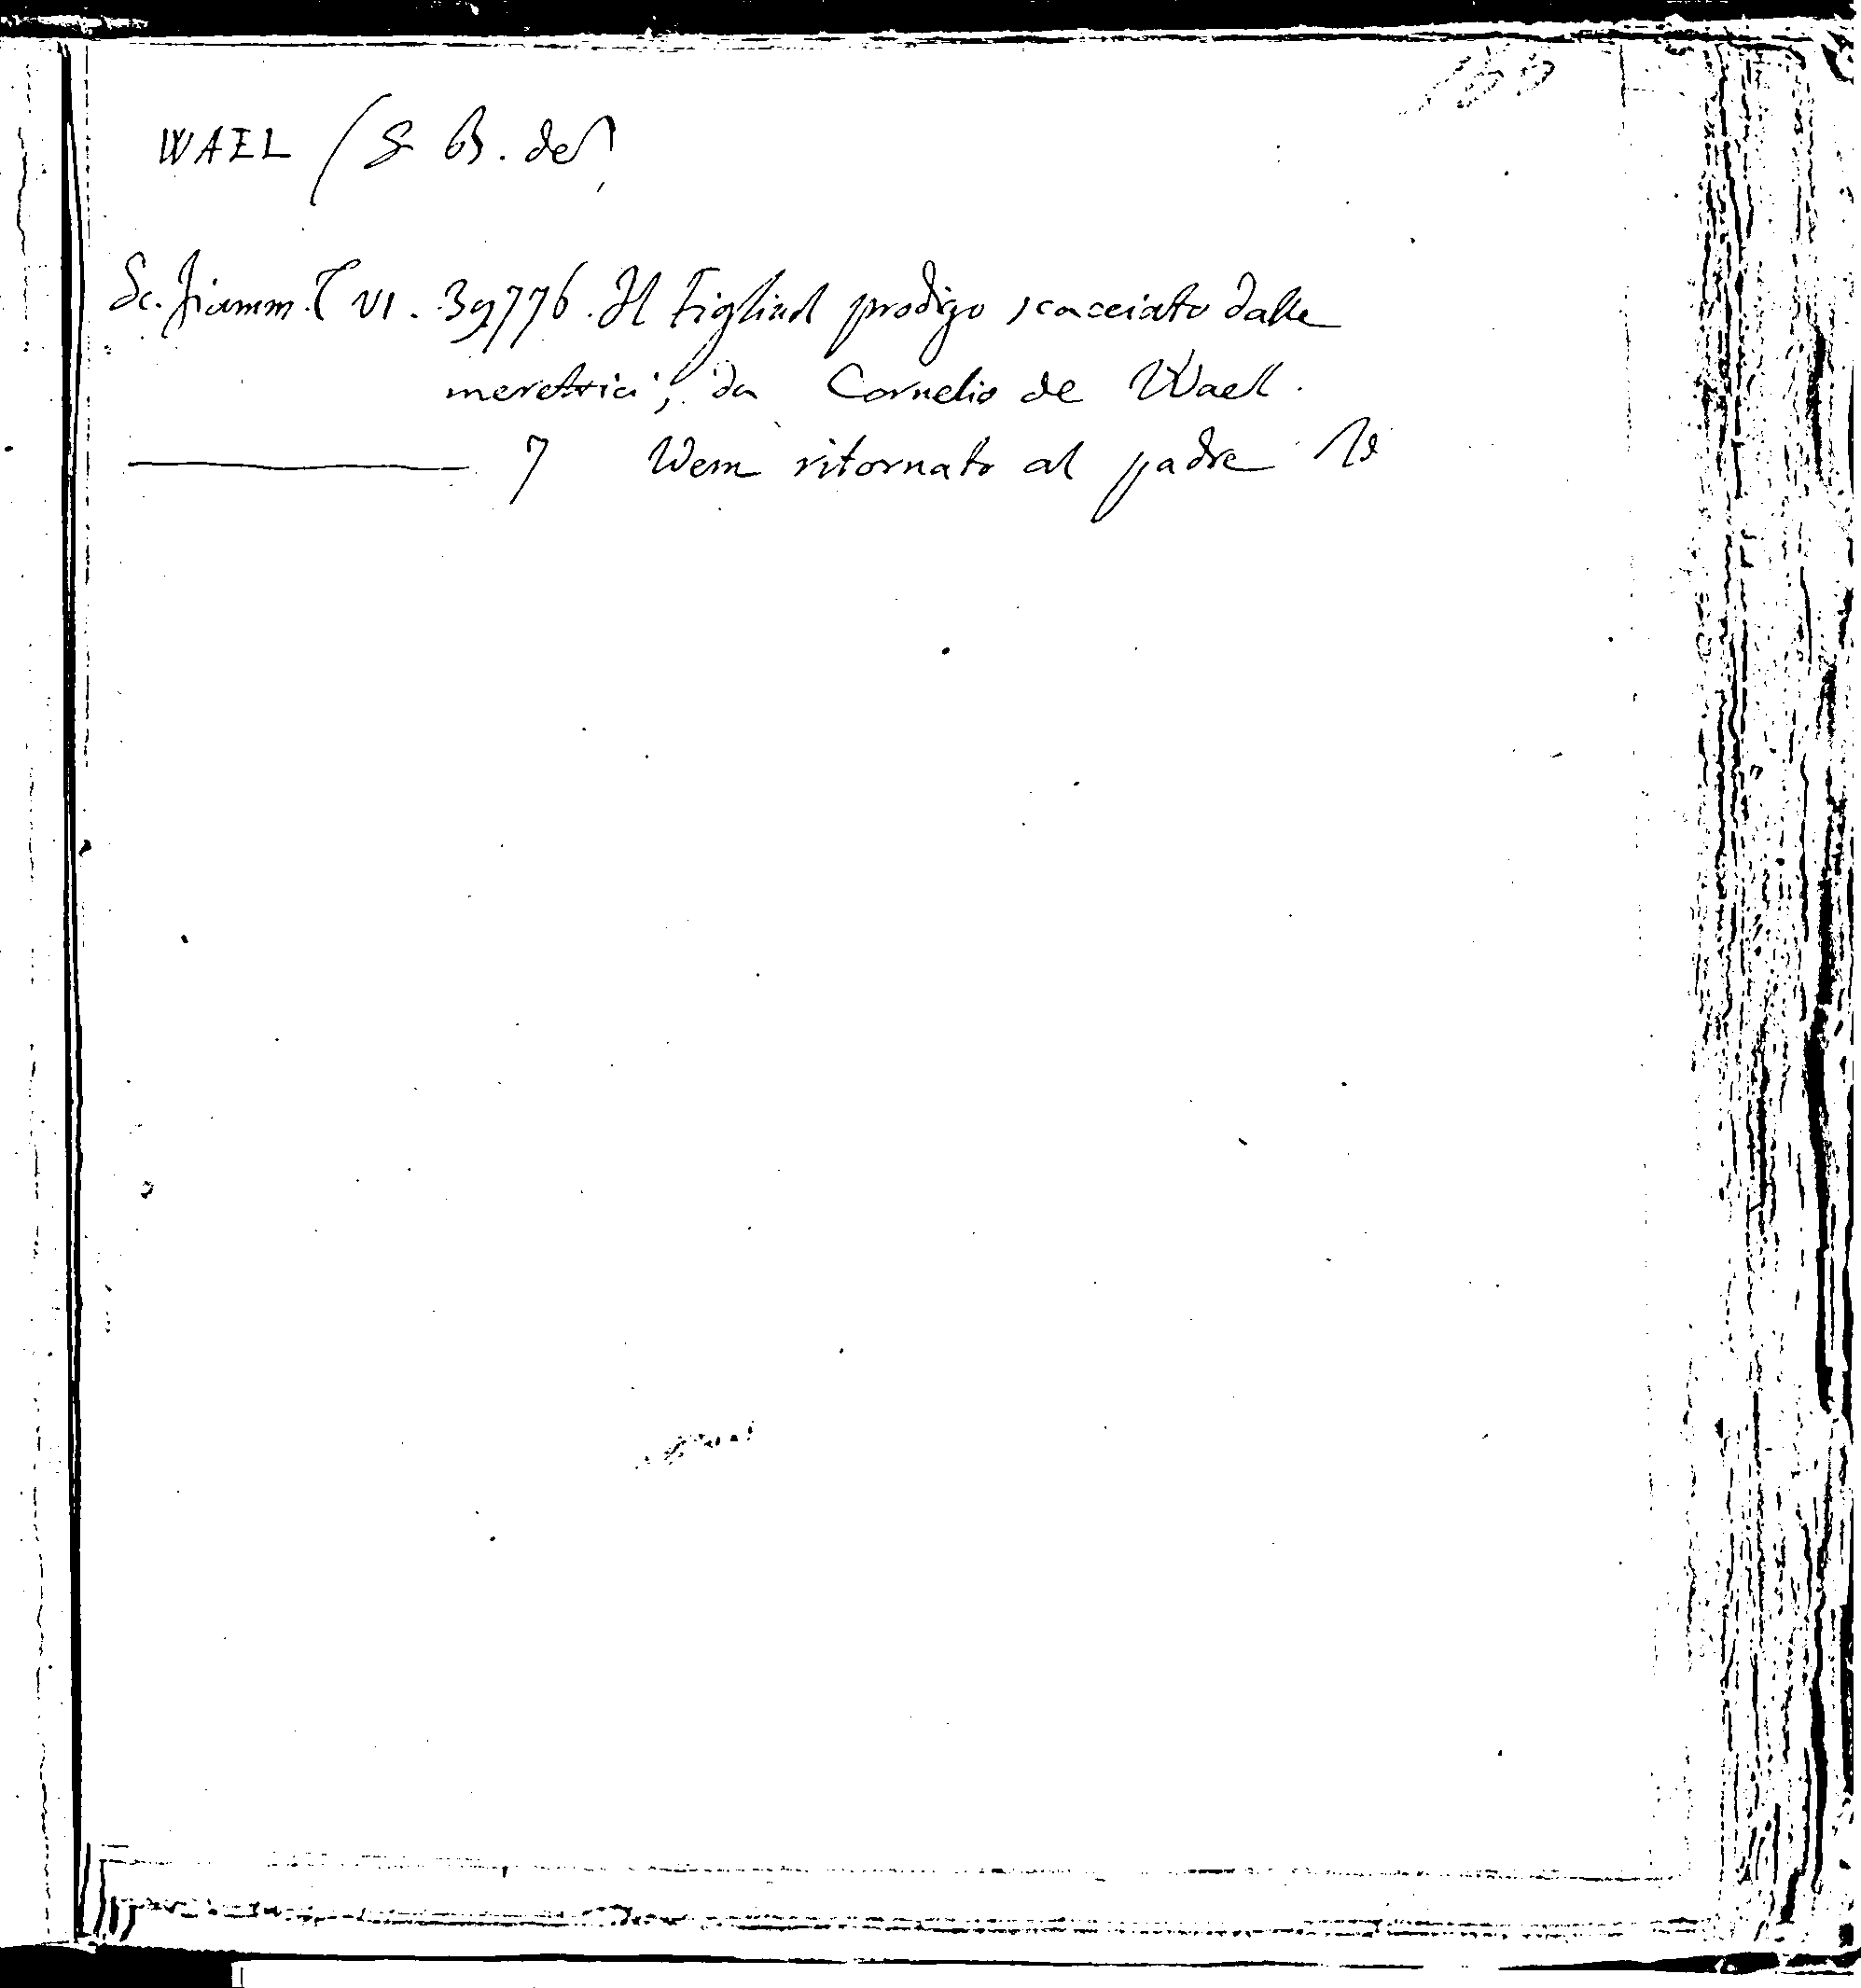 WAEL (G B. de)
Sc. fiamm. T VI. 39776. Il Figliuol prodigo scacciato dalle
meretrici, da Cornelio de Wael.
7 Idem ritornato al padre Id